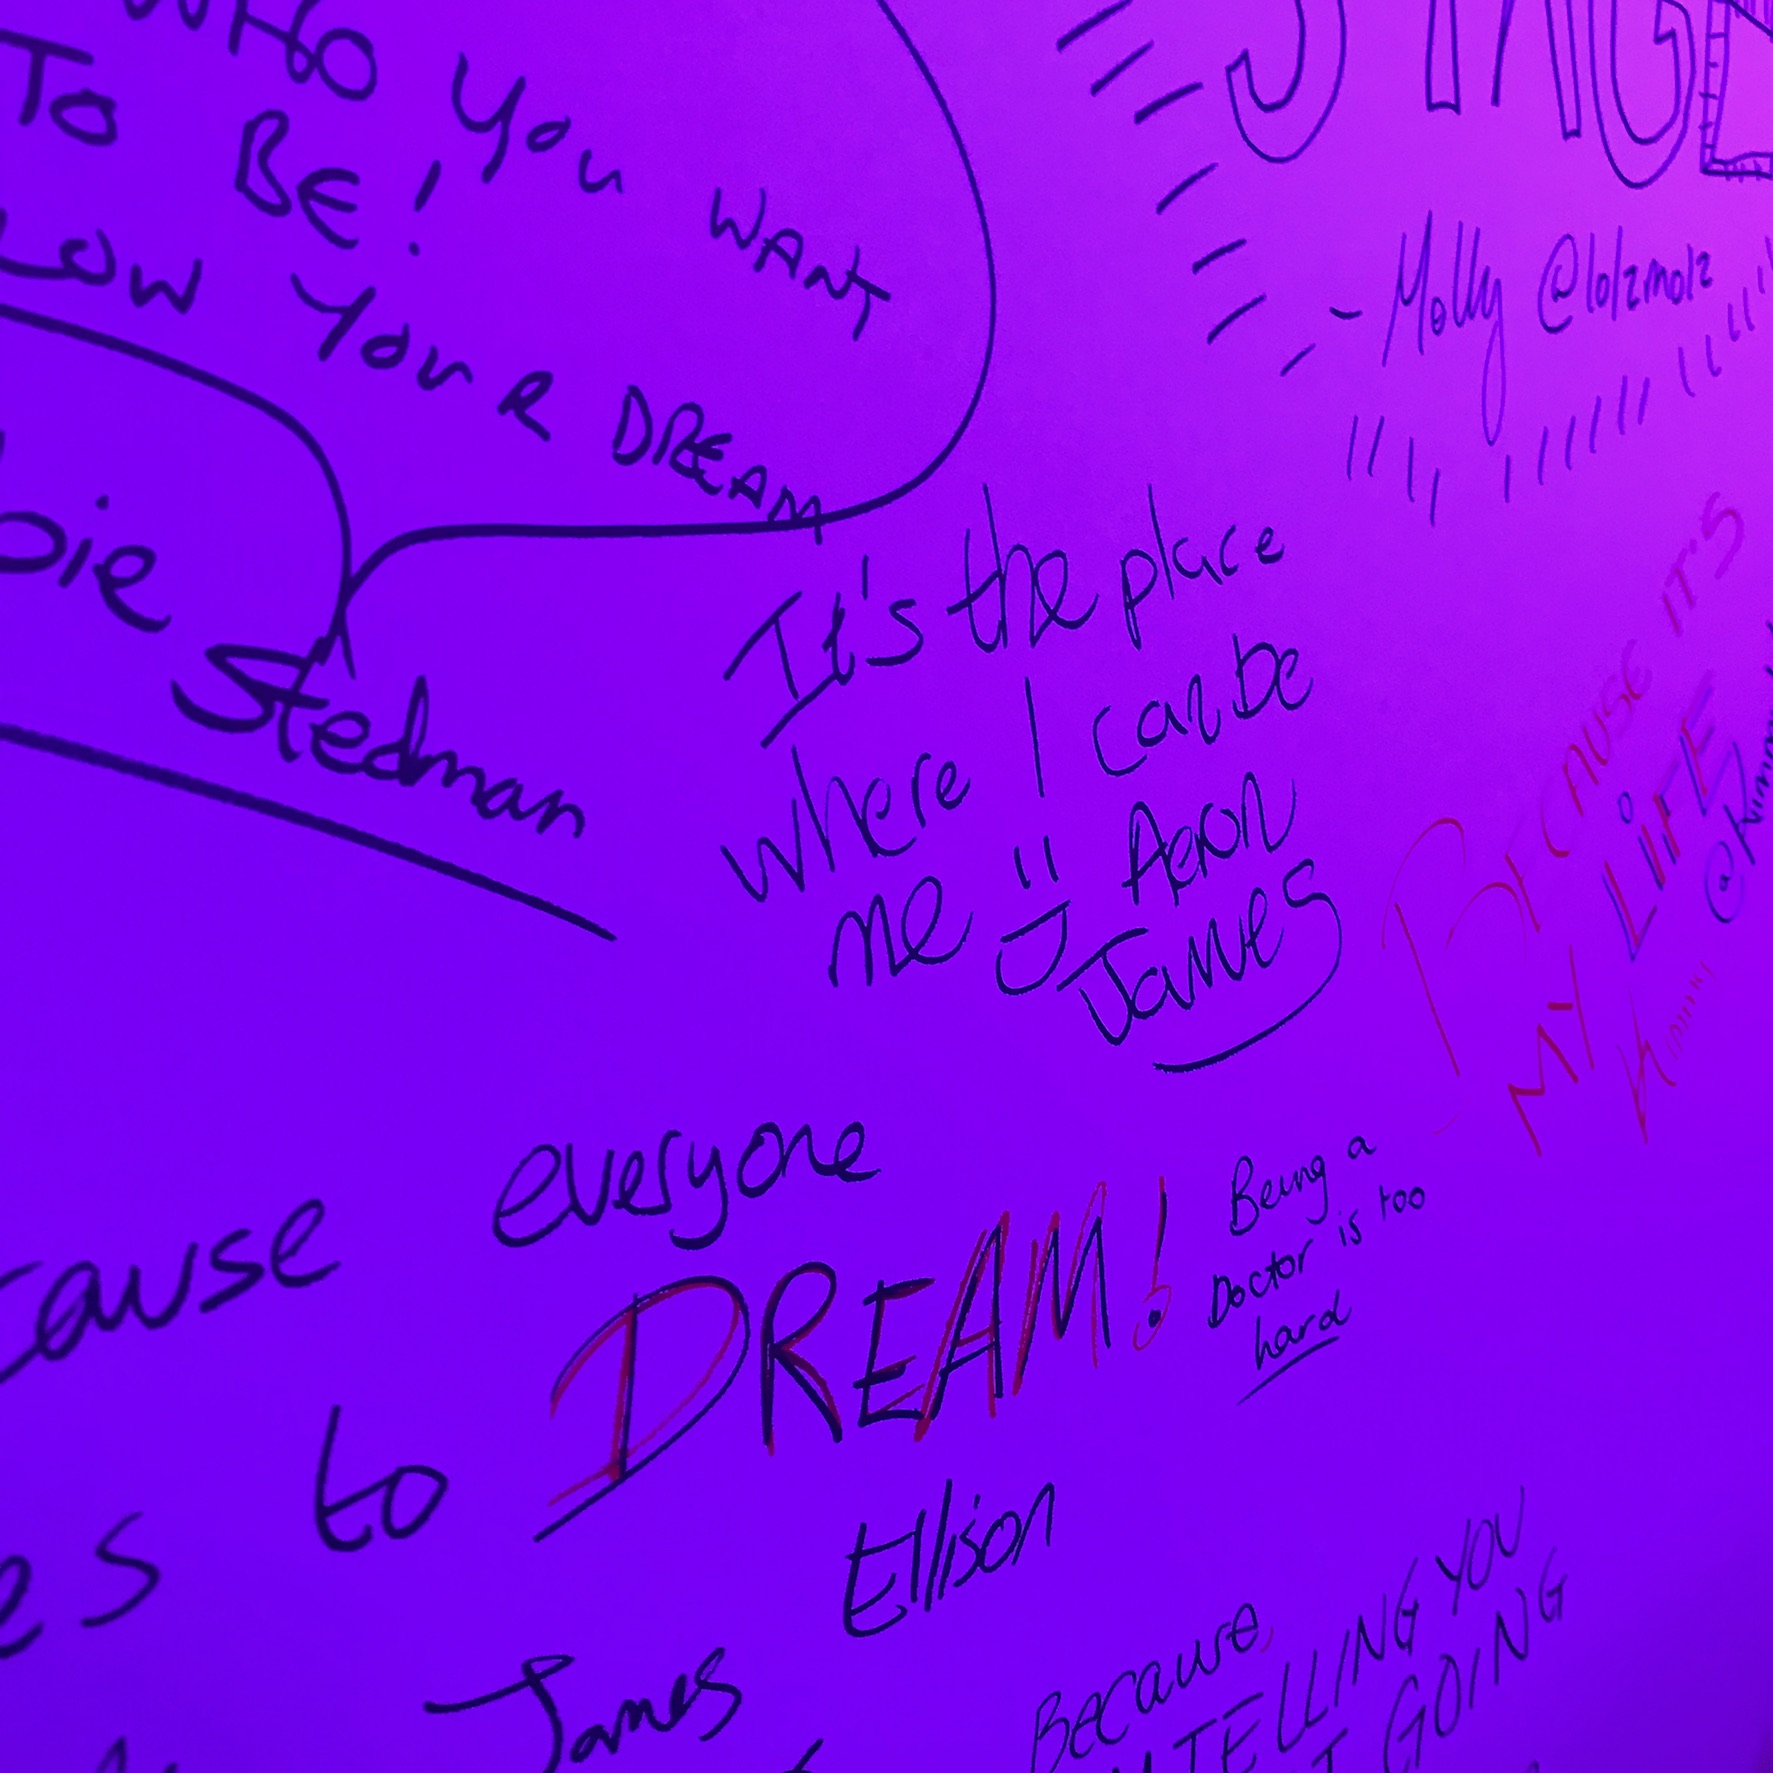 WHO YOU WANT
TO BE!
LOW YOUR DREAM
Stedman
STAGE
- Molly @lolzmolz
It's the place
where I can be
me Aeron
James
BECAUSE IT'S
MY LIFE
Because everyone
to DREAM!
Ellison
James
Being a
Doctor is too
hard
Because,
TELLING YOU
GOING